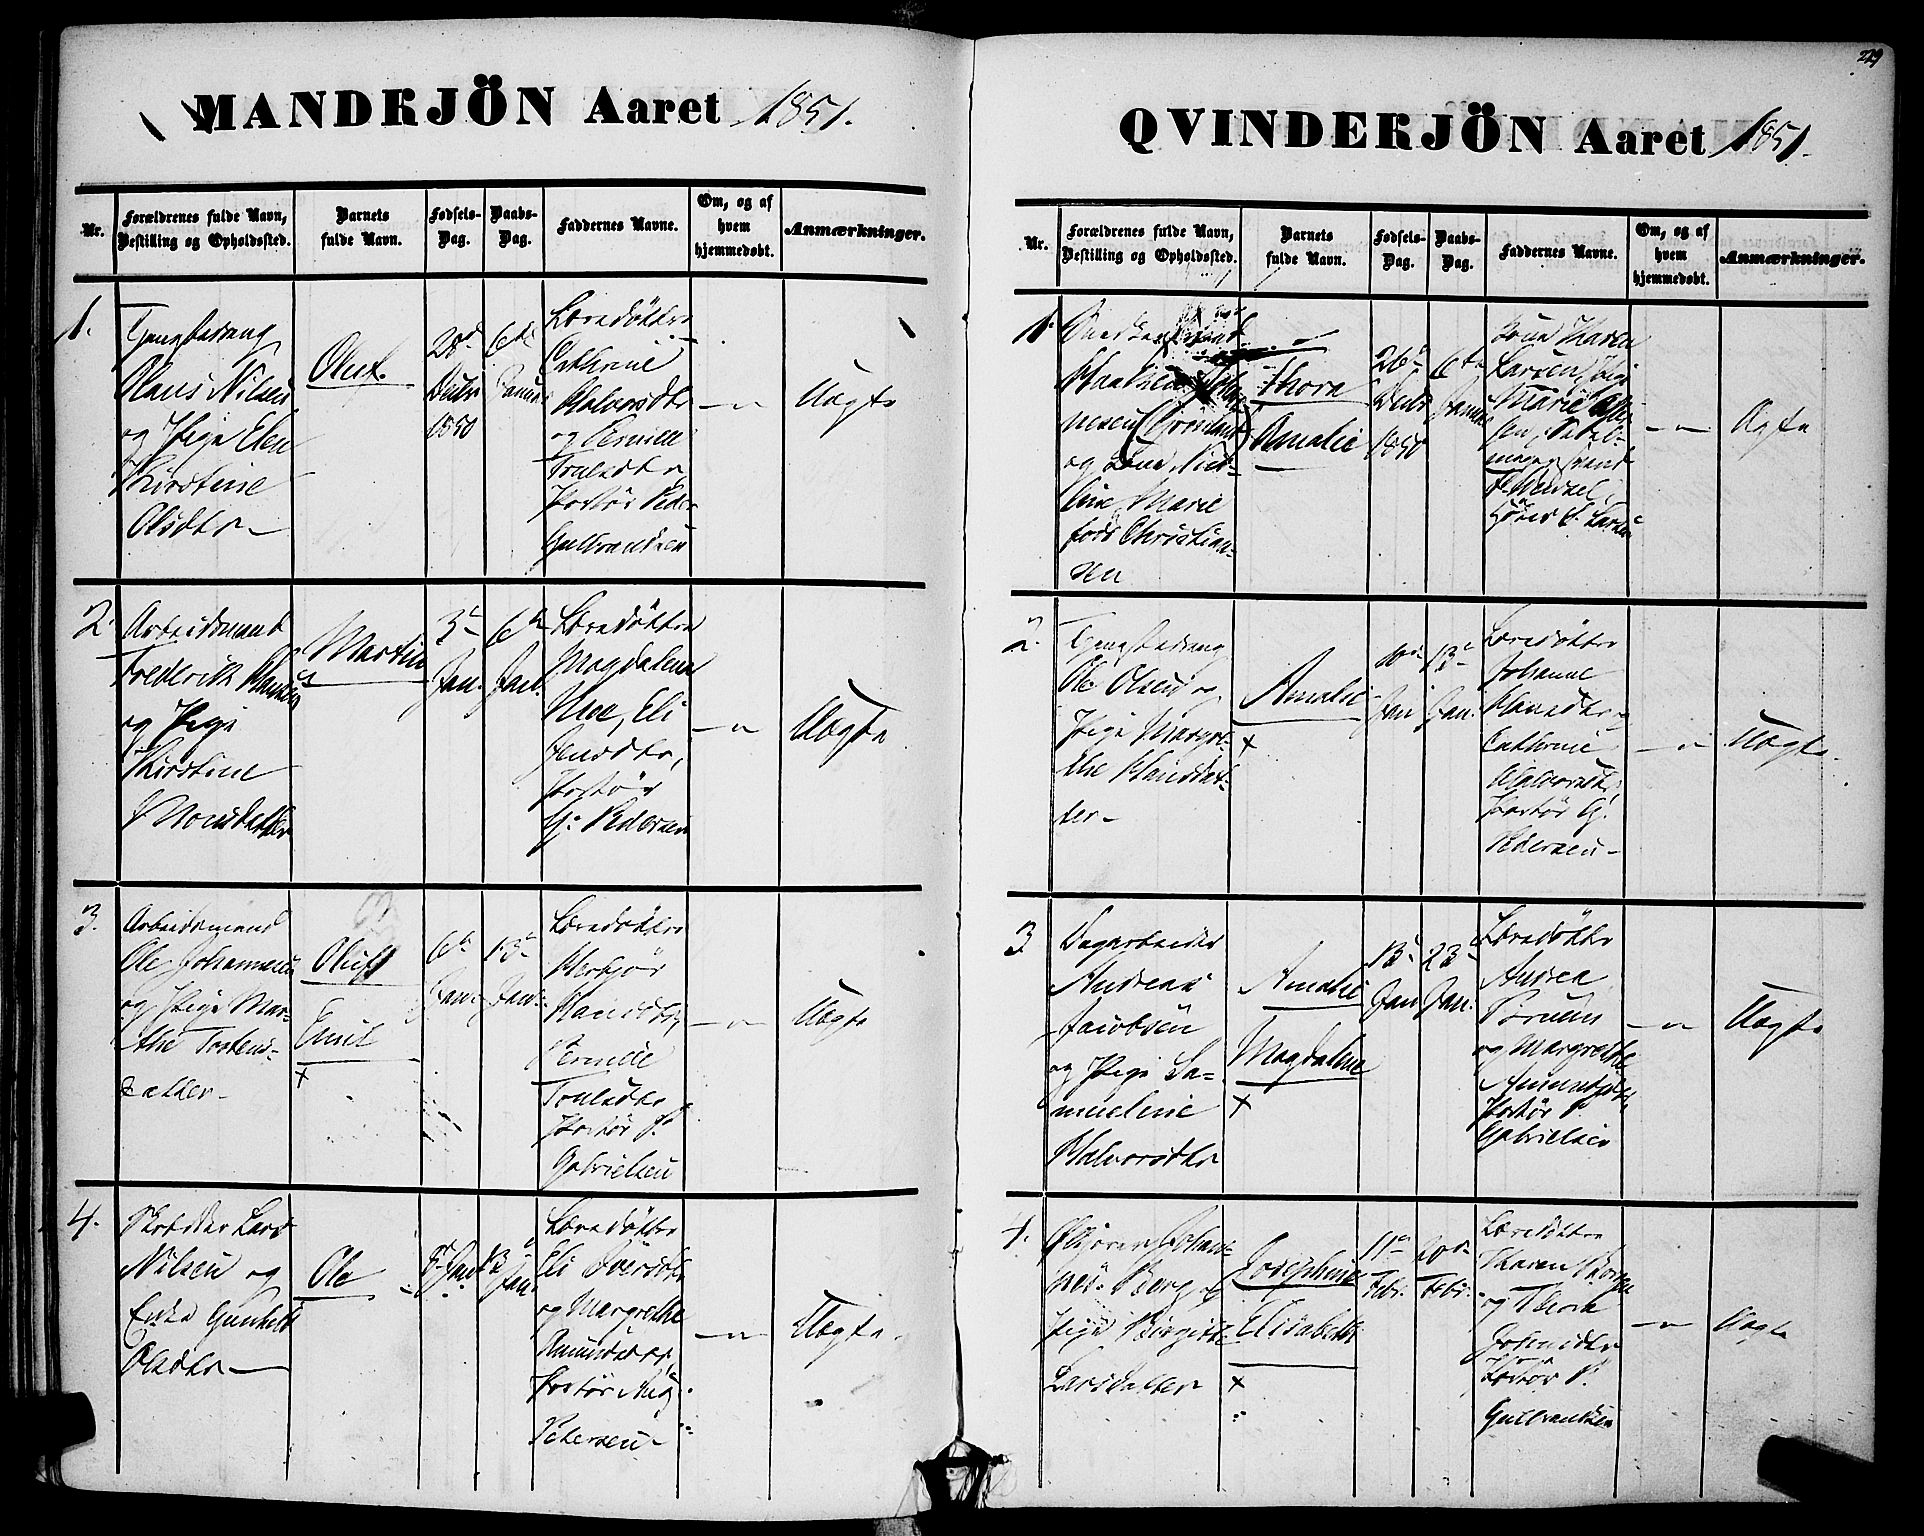 MANDKJÖN Aaret 1851.
Nr.
Forældrenes fulde Navn,
Bestilling og Opholdssted.
Barnets
fulde Navn.
Fødsels-
Dag.
Daabs-
Dag.
Faddernes Navne.
Om, og af
hvem
hjemmedøbt.
Anmærkninger.
1.
Olaus Nilsen
og Pige Elen
Kirstine
Olsdtr
Oluf.
28de
Decbr
1850
6te
Januar
Læredøttre
Cathrine
Halvorsdtr
og Pernille
Trulsdtr
Portør Peder
Gulbrandsen
— " —
Uægte
2
Arbeidsmand
Frederik Hansen
og Pige
Kirstine
Monsdatter
Martin
3de
Jan.
6te
Jan
Læredøttre
Magdalena
Moe, Eli
Jensdtr,
Portør
G. Pedersen
— " —
Uægte
3.
Arbeidsmand
Ole Johannesen
og Pige Mar-
the Torstens-
datter
Oluf
Emil
+
6te
Jan.
13de
Jan.
Læredøttre
Hansdtr,
Pernille
Trulsdtr
Portør P.
Gabrielsen
— " —
Uægte
4.
Skrædder Lars
Nilsen og
Enke Gunhild
Olsdtr —
Ole
8de Jan
13de
Jan.
Læredøttre
Eli Iversdtr
og Margrethe
Amundsdtr,
Portør Aug.
Petersen
— " —
Uægte.
229
QVINDEKJÖN Aaret 1851.
Nr.
Forældrenes fulde Navn,
Bestilling og Opholdssted.
Barnets
fulde Navn.
Fødsels-
Dag.
Daabs-
Dag.
Faddernes Navne.
Om, og af
hvem
hjemmedøbt.
Anmærkninger.
1.
Snedkersvend
(Grønland)
og Kone Nico-
line Marie
født Christian-
sen
Thora
Amalie
26de
Decbr
1850
6te
Januar
Kone Karen
Larsen, Pige
Marie
Sadel-
magersvend
— " —
Ægte
2.
Ole Olsen og
Pige Margre-
the Hansdat-
ter —
Amalie
+
Jan
13de
Jan.
Læredøttre
Johanne
Hansdtr og
Cathrine
Halvorsdtr,
Portør G.
Pedersen —
— " —
Uægte.
3
Dagarbeider
Andreas
Jacobsen
og Pige Sa-
mueline
Halvorsdtr
Amalie
Magdalene
+
13de
Jan
23de
Jan.
Læredøttre
Andrea
og Margrethe
Amundsdtr,
Portør P.
Gabrielsen
— " —
Uægte
4.
Johan-
nes Berg og
Pige Birgitte
Larsdatter
Josephine
Elisabeth
+
11te
Febr.
20de
Febr.
Læredøttre
Karen
og Thora
Portør P.
Gulbrandsen
— " —
Uægte